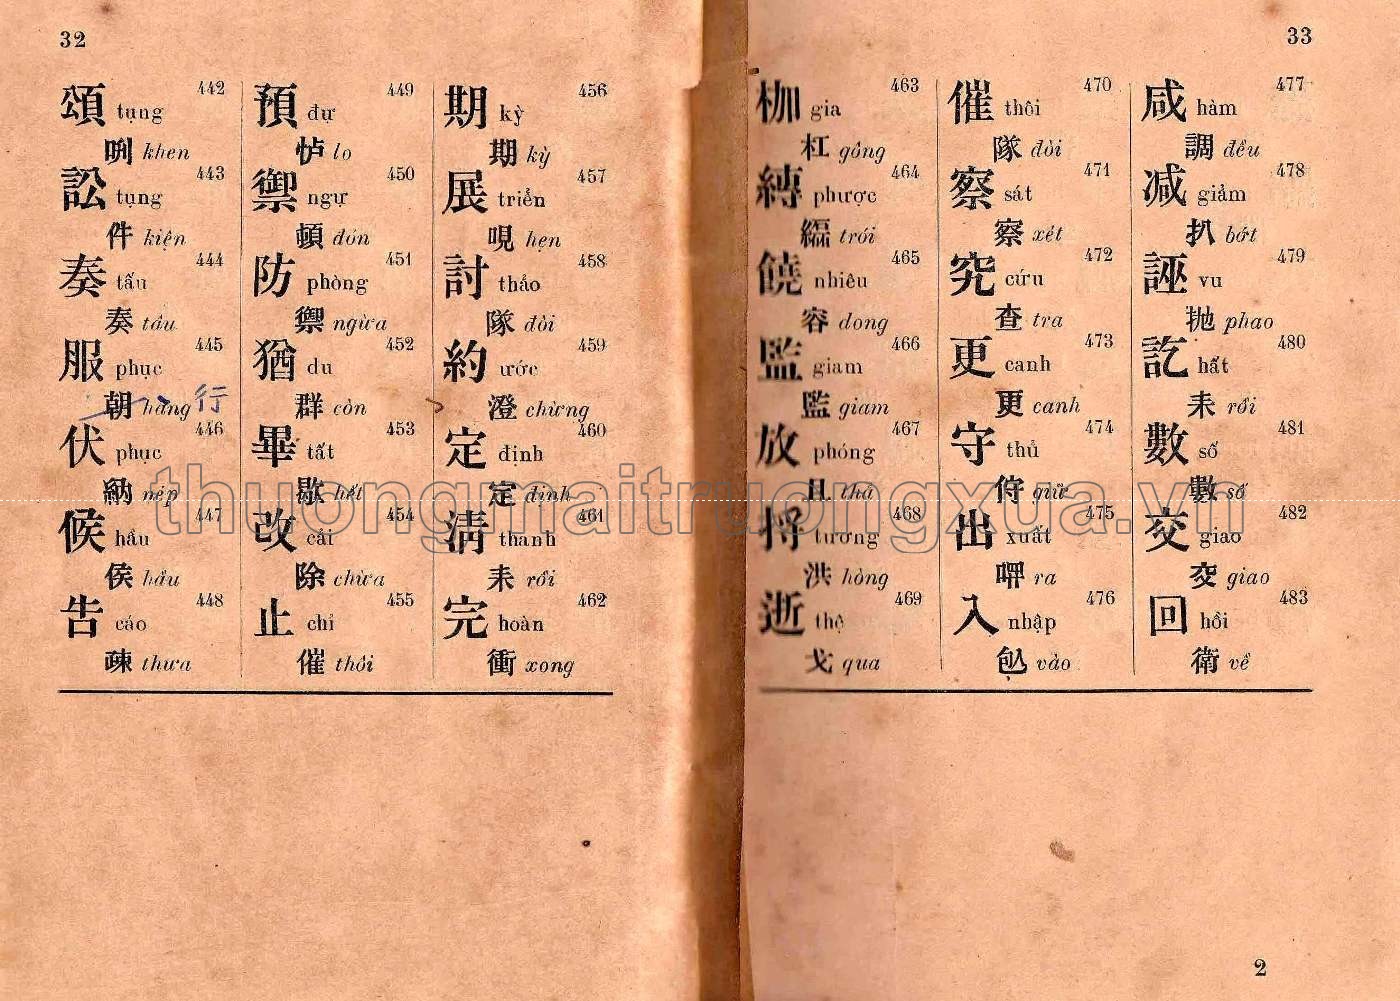 32
442
頌 tụng
唎 khen
443
訟 tụng
件 kiện
444
奏 tấu
奏 tâu
445
服 phục
朝 hàng 行
446
伏 phục
納 nép
447
候 hầu
侯 hầu
448
告 cáo
疎 thưa
449
預 dự
lo
450
禦 ngự
頓 đón
451
防 phòng
禦 ngừa
452
猶 du
群 còn
453
畢 tất
歇 hết
454
改 cải
除 chừa
455
止 chỉ
催 thôi
456
期 kỳ
期 kỳ
457
展 triển
哯 hẹn
458
討 thảo
隊 đòi
459
約 ước
澄 chừng
460
定 định
定 định
461
清 thanh
耒 rồi
462
完 hoàn
衝 xong
33
463
枷 gia
杠 gông
464
縛 phược
trói
465
饒 nhiêu
容 dong
466
監 giam
監 giam
467
放 phóng
且 thả
468
将 tương
洪 hòng
469
逝 thệ
戈 qua
470
催 thôi
隊 đòi
471
察 sát
察 xét
472
究 cứu
查 tra
473
更 canh
更 canh
474
守 thủ
侍 giữ
475
出 xuất
ra
476
入 nhập
vào
477
咸 hàm
調 đều
478
减 giảm
扒 bớt
479
誣 vu
抛 phao
480
訖 hất
耒 rồi
481
數 số
數 số
482
交 giao
交 giao
483
回 hồi
衛 về
2
thuongmaitruongxua.vn